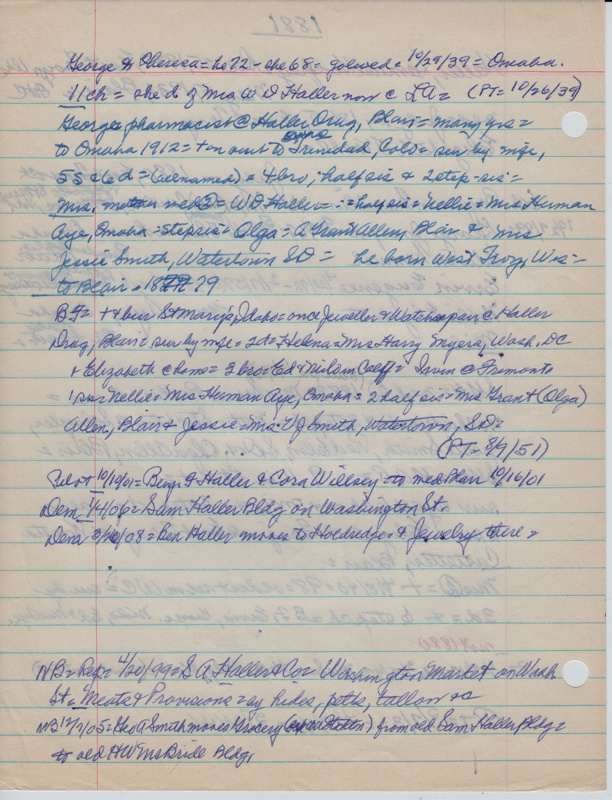 1881
George & Theresa = he 72 - she 68 = golwed = 10/29/39 = Omaha.
11ch = she d of Mrs W D Haller now @ LA = (PT = 10/26/39)
George pharmacist @ Haller Drug, Blair = many yrs =
to Omaha 1912 = + on visit to Trinidad, Colo = sur by wife,
5s & 6d = (all named) = 4 bro, half sis & 2 step-sis =
Mrs. = W D Haller = half sis = Nellie = Mrs Herman
Aye, Omaha = stepsis = Olga = A Grant Allen, Blair & Mrs
Jessie Smith, Watertown SD = he born West Troy, Wis =
to Blair = 1879
BF = + & bur St Mary's, Idaho = once Jeweller & Watch repair @ Haller
Drug, Blair = sur by wife = 2d = Helena = Mrs Harry Myers, Wash, DC
& Elizabeth @ home = 3 bro = Ed & Milo in Calif = Irvin @ Fremont =
1 sis = Nellie = Mrs Herman Aye, Omaha = 2 half sis = Mrs Grant (Olga)
Allen, Blair & Jessie = Mrs V J Smith, Watertown, SD =
(PT = 8/9/51)
Pilot 10/19/01 = Benj F Haller & Cora Willsey to wed Blair 10/16/01
Dem 1/4/06 = Sam Haller Bldg on Washington St.
Dem /08 = Ben Haller moves to Holdredge & Jewelry there =
NB = Rep = 4/20/99 = S A Haller & Co = Washington Market on Wash
St = Meats & Provisions = hides, pelts, tallow &c
NB 12/7/05 = Geo A Smith moves Grocery from old Sam Haller Bldg =
to old HW McBride Bldg,